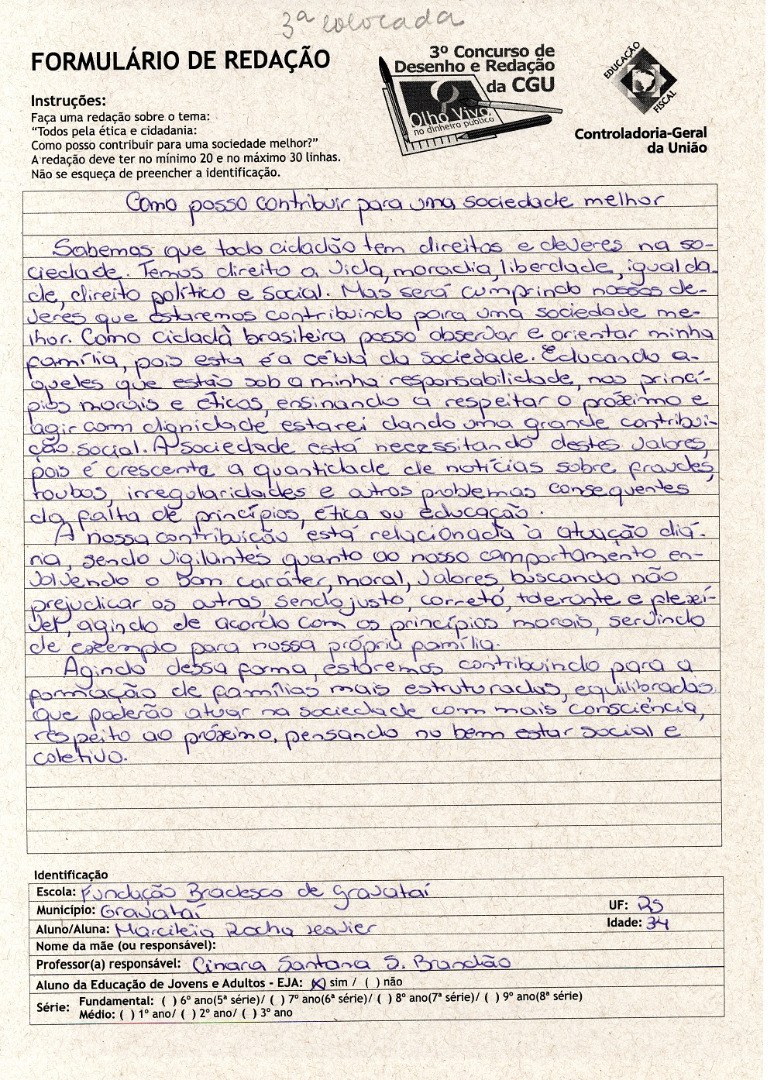 3ª colocada
FORMULÁRIO DE REDAÇÃO
3º Concurso de
Desenho e Redação
da CGU
Olho Vivo
no dinheiro público
EDUCAÇÃO
FISCAL
Controladoria-Geral
da União
Instruções:
Faça uma redação sobre o tema:
"Todos pela ética e cidadania:
Como posso contribuir para uma sociedade melhor?"
A redação deve ter no mínimo 20 e no máximo 30 linhas.
Não se esqueça de preencher a identificação.
Como posso contribuir para uma sociedade melhor
Sabemos que todo cidadão tem direitos e deveres na so-
ciedade. Temos direito a vida, moradia, liberdade, igualda-
de, direito político e social. Mas será cumprindo nossos de-
veres que estaremos contribuindo para uma sociedade me-
lhor. Como cidadã brasileira posso observar e orientar minha
família, pois esta é a célula da sociedade. Educando a-
queles que estão sob a minha responsabilidade, nos princí-
pios morais e éticos, ensinando a respeitar o próximo e
agir com dignidade estarei dando uma grande contribui-
ção social. A sociedade está necessitando destes valores,
pois é crescente a quantidade de notícias sobre fraudes,
roubos, irregularidades e outros problemas consequentes
da falta de princípios, ética ou educação.
A nossa contribuição está relacionada à atuação diá-
ria, sendo vigilantes quanto ao nosso comportamento en-
volvendo o bom caráter, moral, valores buscando não
prejudicar os outros, sendo justo, correto, tolerante e flexí-
vel, agindo de acordo com os princípios morais, servindo
de exemplo para nossa própria família.
Agindo dessa forma, estaremos contribuindo para a
formação de famílias mais estruturadas, equilibradas
que poderão atuar na sociedade com mais consciência,
respeito ao próximo, pensando no bem estar social e
coletivo.
Identificação
Escola: Fundação Bradesco de Gravataí
Município: Gravataí UF: RS
Aluno/Aluna: Marcileia Rocha Idade: 34
Nome da mãe (ou responsável):
Professor(a) responsável: Cinara Santana S. Brandão
Aluno da Educação de Jovens e Adultos - EJA: (X) sim / ( ) não
Série: Fundamental: ( ) 6º ano(5ª série)/ ( ) 7º ano(6ª série)/ ( ) 8º ano(7ª série)/ ( ) 9º ano(8ª série)
Médio: ( ) 1º ano/ ( ) 2º ano/ ( ) 3º ano